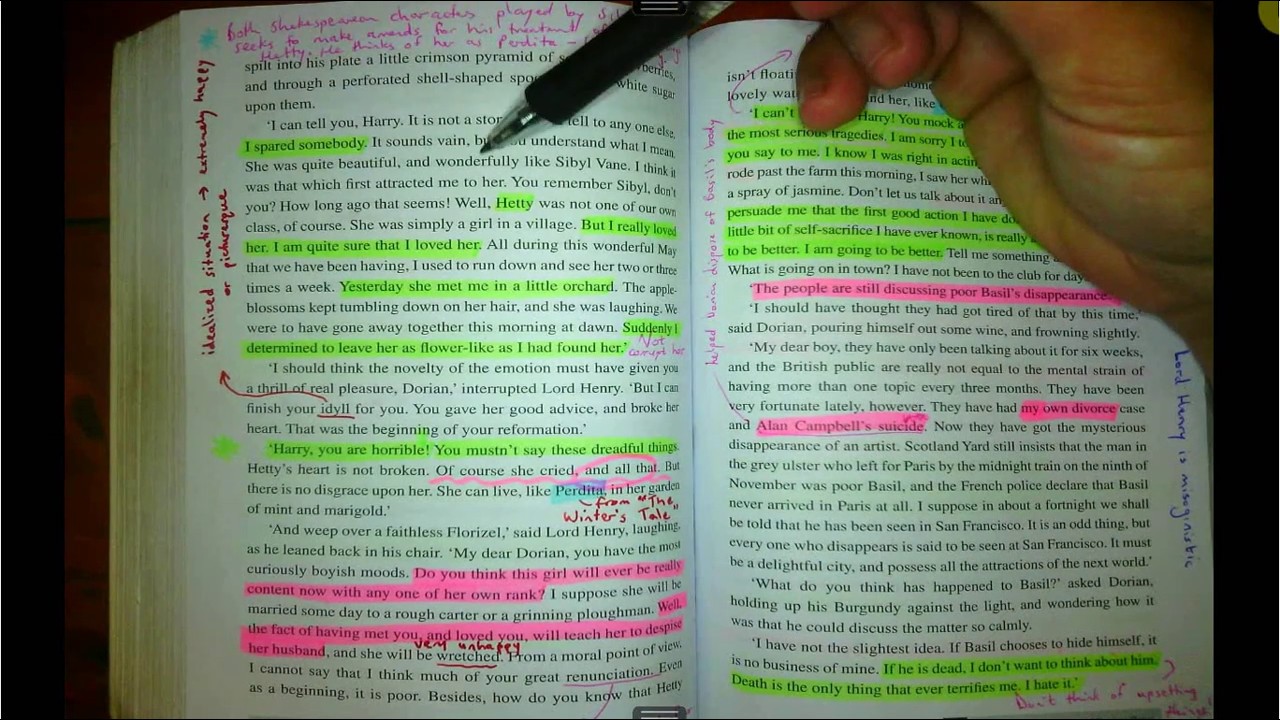 Both shakespearean characters played by
seeks to make amends for his treatment of
Hetty. He thinks of her as Perdita –
spilt into his plate a little crimson pyramid of
and through a perforated shell-shaped white sugar
upon them.
'I can tell you, Harry. It is not a tell to any one else,
I spared somebody. It sounds vain, understand what I mean.
She was quite beautiful, and wonderfully like Sibyl Vane. I think it
was that which first attracted me to her. You remember Sibyl, don't
you? How long ago that seems! Well, Hetty was not one of our own
class, of course. She was simply a girl in a village. But I really loved
her. I am quite sure that I loved her. All during this wonderful May
that we have been having, I used to run down and see her two or three
times a week. Yesterday she met me in a little orchard. The apple-
blossoms kept tumbling down on her hair, and she was laughing. We
were to have gone away together this morning at dawn. Suddenly I
determined to leave her as flower-like as I had found her.'
Not
corrupt her
'I should think the novelty of the emotion must have given you
a thrill of real pleasure, Dorian,' interrupted Lord Henry. 'But I can
finish your idyll for you. You gave her good advice, and broke her
heart. That was the beginning of your reformation.'
'Harry, you are horrible! You mustn't say these dreadful things.
Hetty's heart is not broken. Of course she cried, and all that. But
there is no disgrace upon her. She can live, like Perdita, in her garden
of mint and marigold.'
from "The
Winter's Tale"
'And weep over a faithless Florizel,' said Lord Henry, laughing,
as he leaned back in his chair. 'My dear Dorian, you have the most
curiously boyish moods. Do you think this girl will ever be really
content now with any one of her own rank? I suppose she will be
married some day to a rough carter or a grinning ploughman. Well,
the fact of having met you, and loved you, will teach her to despise
very unhappy
her husband, and she will be wretched. From a moral point of view,
I cannot say that I think much of your great renunciation. Even
as a beginning, it is poor. Besides, how do you know that Hetty
idealized situation → extremely happy
or picturesque
isn't
lovely and her, like
'I can't Harry! You mock
the most serious tragedies. I am sorry I
you say to me. I know I was right in
rode past the farm this morning, I saw her
a spray of jasmine. Don't let us talk about it
persuade me that the first good action I have
little bit of self-sacrifice I have ever known, is really
to be better. I am going to be better. Tell me something
What is going on in town? I have not been to the club for
'The people are still discussing poor Basil's disappearance.'
'I should have thought they had got tired of that by this time,'
said Dorian, pouring himself out some wine, and frowning slightly.
'My dear boy, they have only been talking about it for six weeks,
and the British public are really not equal to the mental strain of
having more than one topic every three months. They have been
very fortunate lately, however. They have had my own divorce case
and Alan Campbell's suicide. Now they have got the mysterious
disappearance of an artist. Scotland Yard still insists that the man in
the grey ulster who left for Paris by the midnight train on the ninth of
November was poor Basil, and the French police declare that Basil
never arrived in Paris at all. I suppose in about a fortnight we shall
be told that he has been seen in San Francisco. It is an odd thing, but
every one who disappears is said to be seen at San Francisco. It must
be a delightful city, and possess all the attractions of the next world.'
'What do you think has happened to Basil?' asked Dorian,
holding up his Burgundy against the light, and wondering how it
was that he could discuss the matter so calmly.
'I have not the slightest idea. If Basil chooses to hide himself, it
is no business of mine. If he is dead, I don't want to think about him.
Death is the only thing that ever terrifies me. I hate it.'
Don't think of upsetting
things!
helped Dorian dispose of Basil's body
Lord Henry is misoginistic